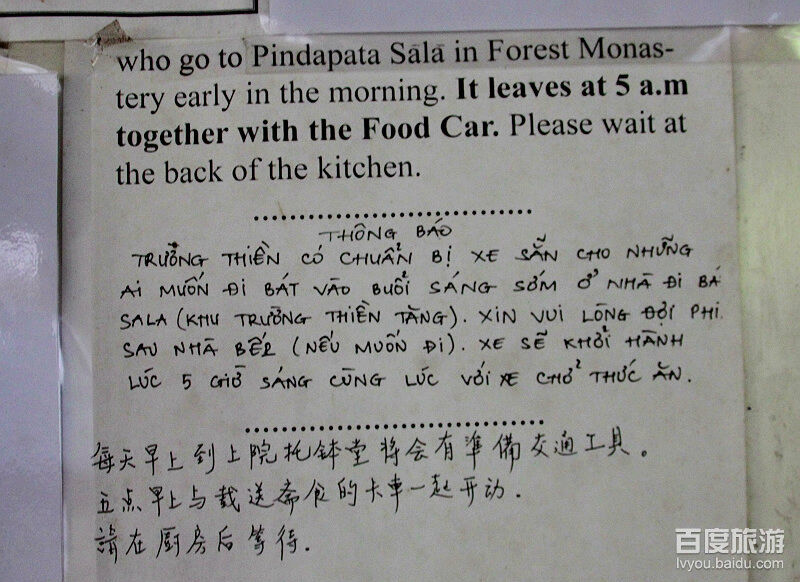 who go to Pindapata Sālā in Forest Monas-
tery early in the morning. It leaves at 5 a.m
together with the Food Car. Please wait at
the back of the kitchen.
THÔNG BÁO
TRƯỜNG THIỀN CÓ CHUẨN BỊ XE SẴN CHO NHỮNG
AI MUỐN ĐI BÁT VÀO BUỔI SÁNG SỚM Ở NHÀ ĐI BÁ
SALA (KHU TRƯỜNG THIỀN TĂNG). XIN VUI LÒNG ĐỢI PHÍ
SAU NHÀ BẾP (NẾU MUỐN ĐI). XE SẼ KHỞI HÀNH
LÚC 5 GIỜ SÁNG CÙNG LÚC VỚI XE CHỞ THỨC ĂN.
每天早上到上院托钵堂将会有準備交通工具。
五点早上与载送斋食的卡車一起开动.
請在厨房后等待.
百度旅游
lvyou.baidu.com